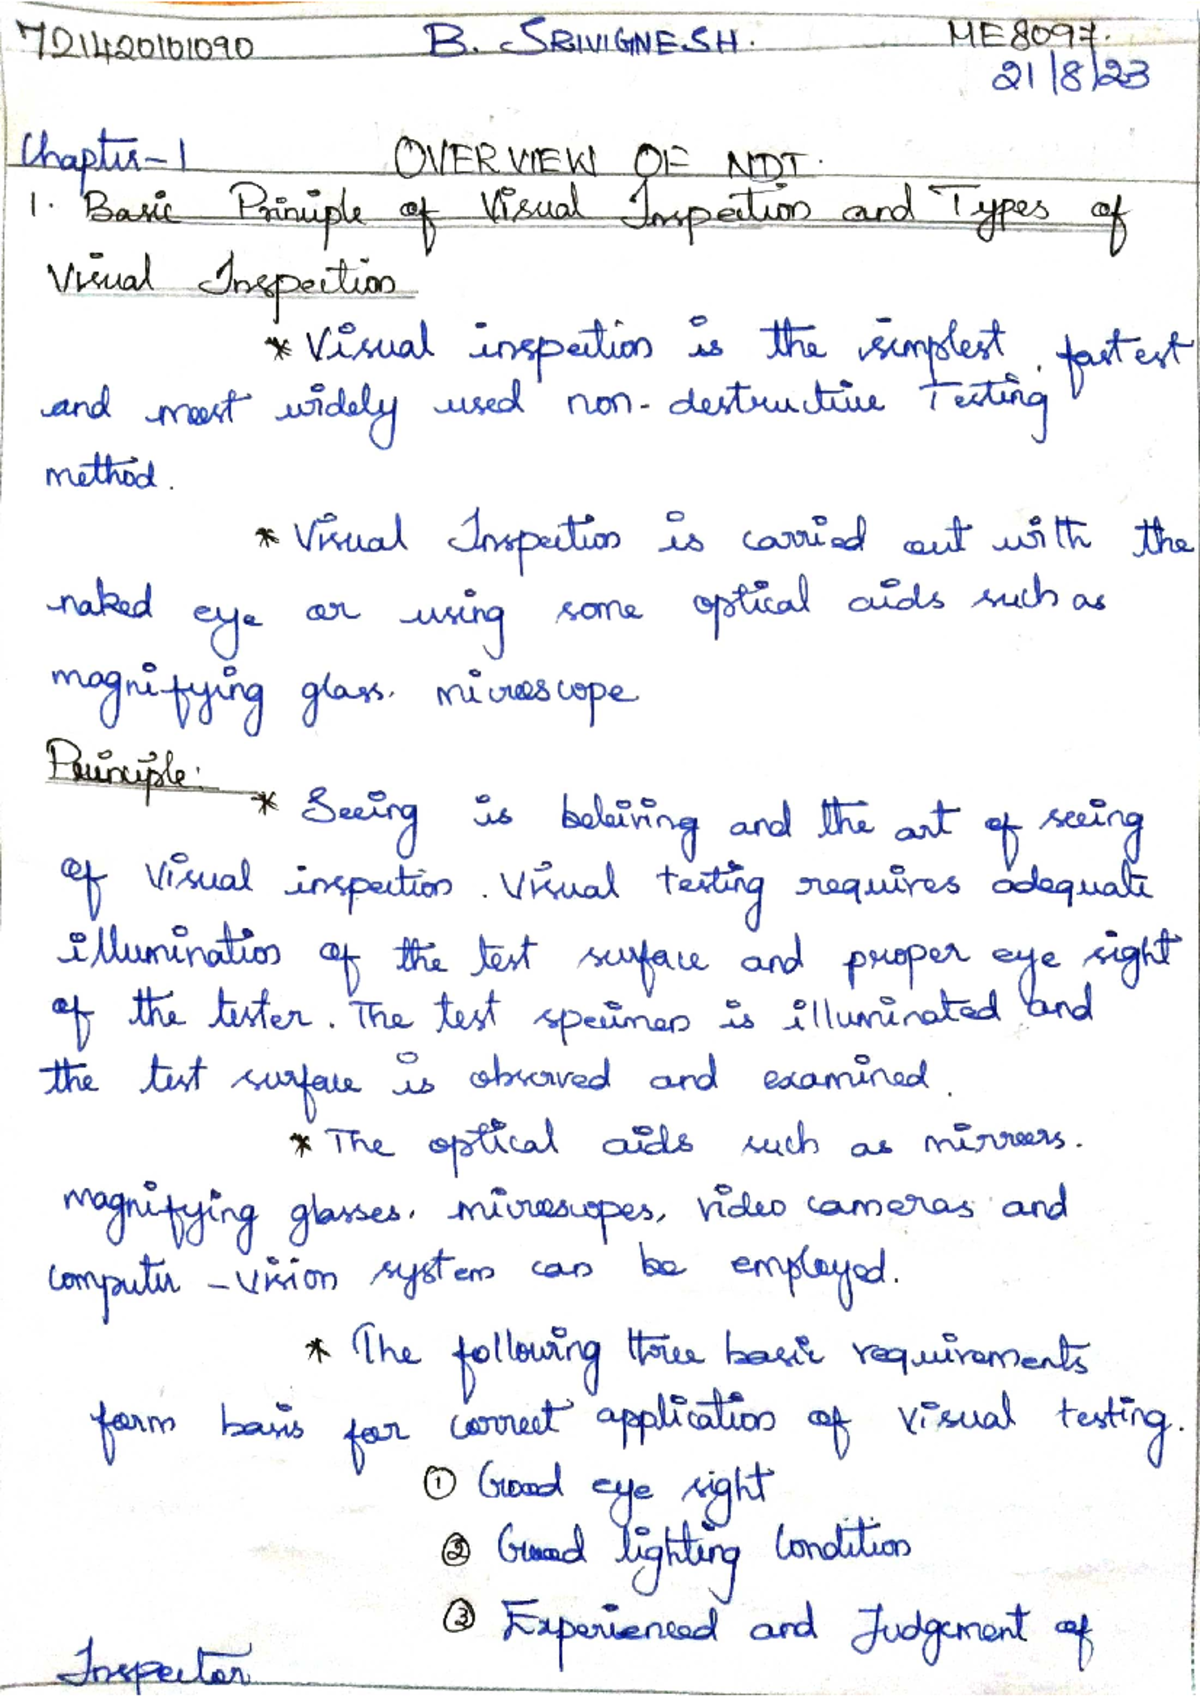 721420101090 B. SRIVIGNESH. ME8097.
21/8/23
Chapter-1 OVERVIEW OF NDT.
1. Basic Priniple of Visual Inspection and Types of
Visual Inspection
* Visual inspection is the simplest, fastest
and most widely used non-destructive Testing
method.
* Visual Inspection is carried out with the
naked eye or using some optical aids such as
magnifying glass. microscope
Principle:
* Seeing is beleiving and the art of seeing
of visual inspection. Visual testing requires adequate
illumination of the test surface and proper eye sight
of the tester. The test specimen is illuminated and
the test surface is observed and examined.
* The optical aids such as mirrors.
magnifying glasses. microscopes, video cameras and
computer-vision system can be employed.
* The following three basic requirements
form basis for correct application of visual testing.
① Good eye sight
② Good lighting Condition
③ Experienced and Judgement of
Inspector